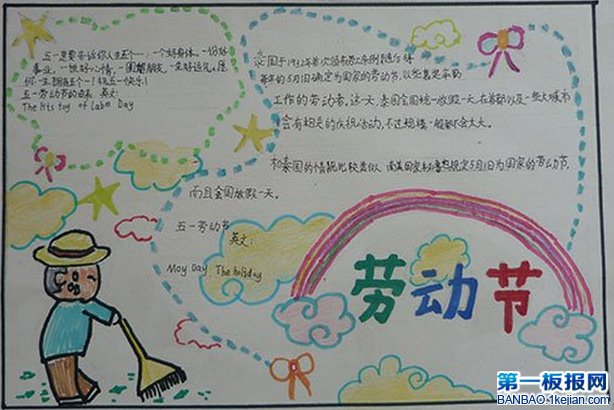 五一是要告诉你人生五个一:一个好身体,一份好
事业,一世好心情,一圈好朋友,一朵好运花,愿
你一生拥有五个一!祝五一快乐!
五一劳动节的由来 英文:
The Hts toy of Labn Day
泰国于1932年首次颁布劳工条例,随后将
每年的5月1日确定为国家的劳动节,以慰
工作的劳动者。这一天,泰国全国统一放假一天,在首都以及一些大城市
会有相关的庆祝活动,不过规模一般都不会太大。
和泰国的情况比较类似 南美国 规定5月1日为国家的劳动节,
而且全国放假一天。
五一劳动节
英文:
May Day The holiday
劳动节
第一板报网
BANBAO.1kejian.com